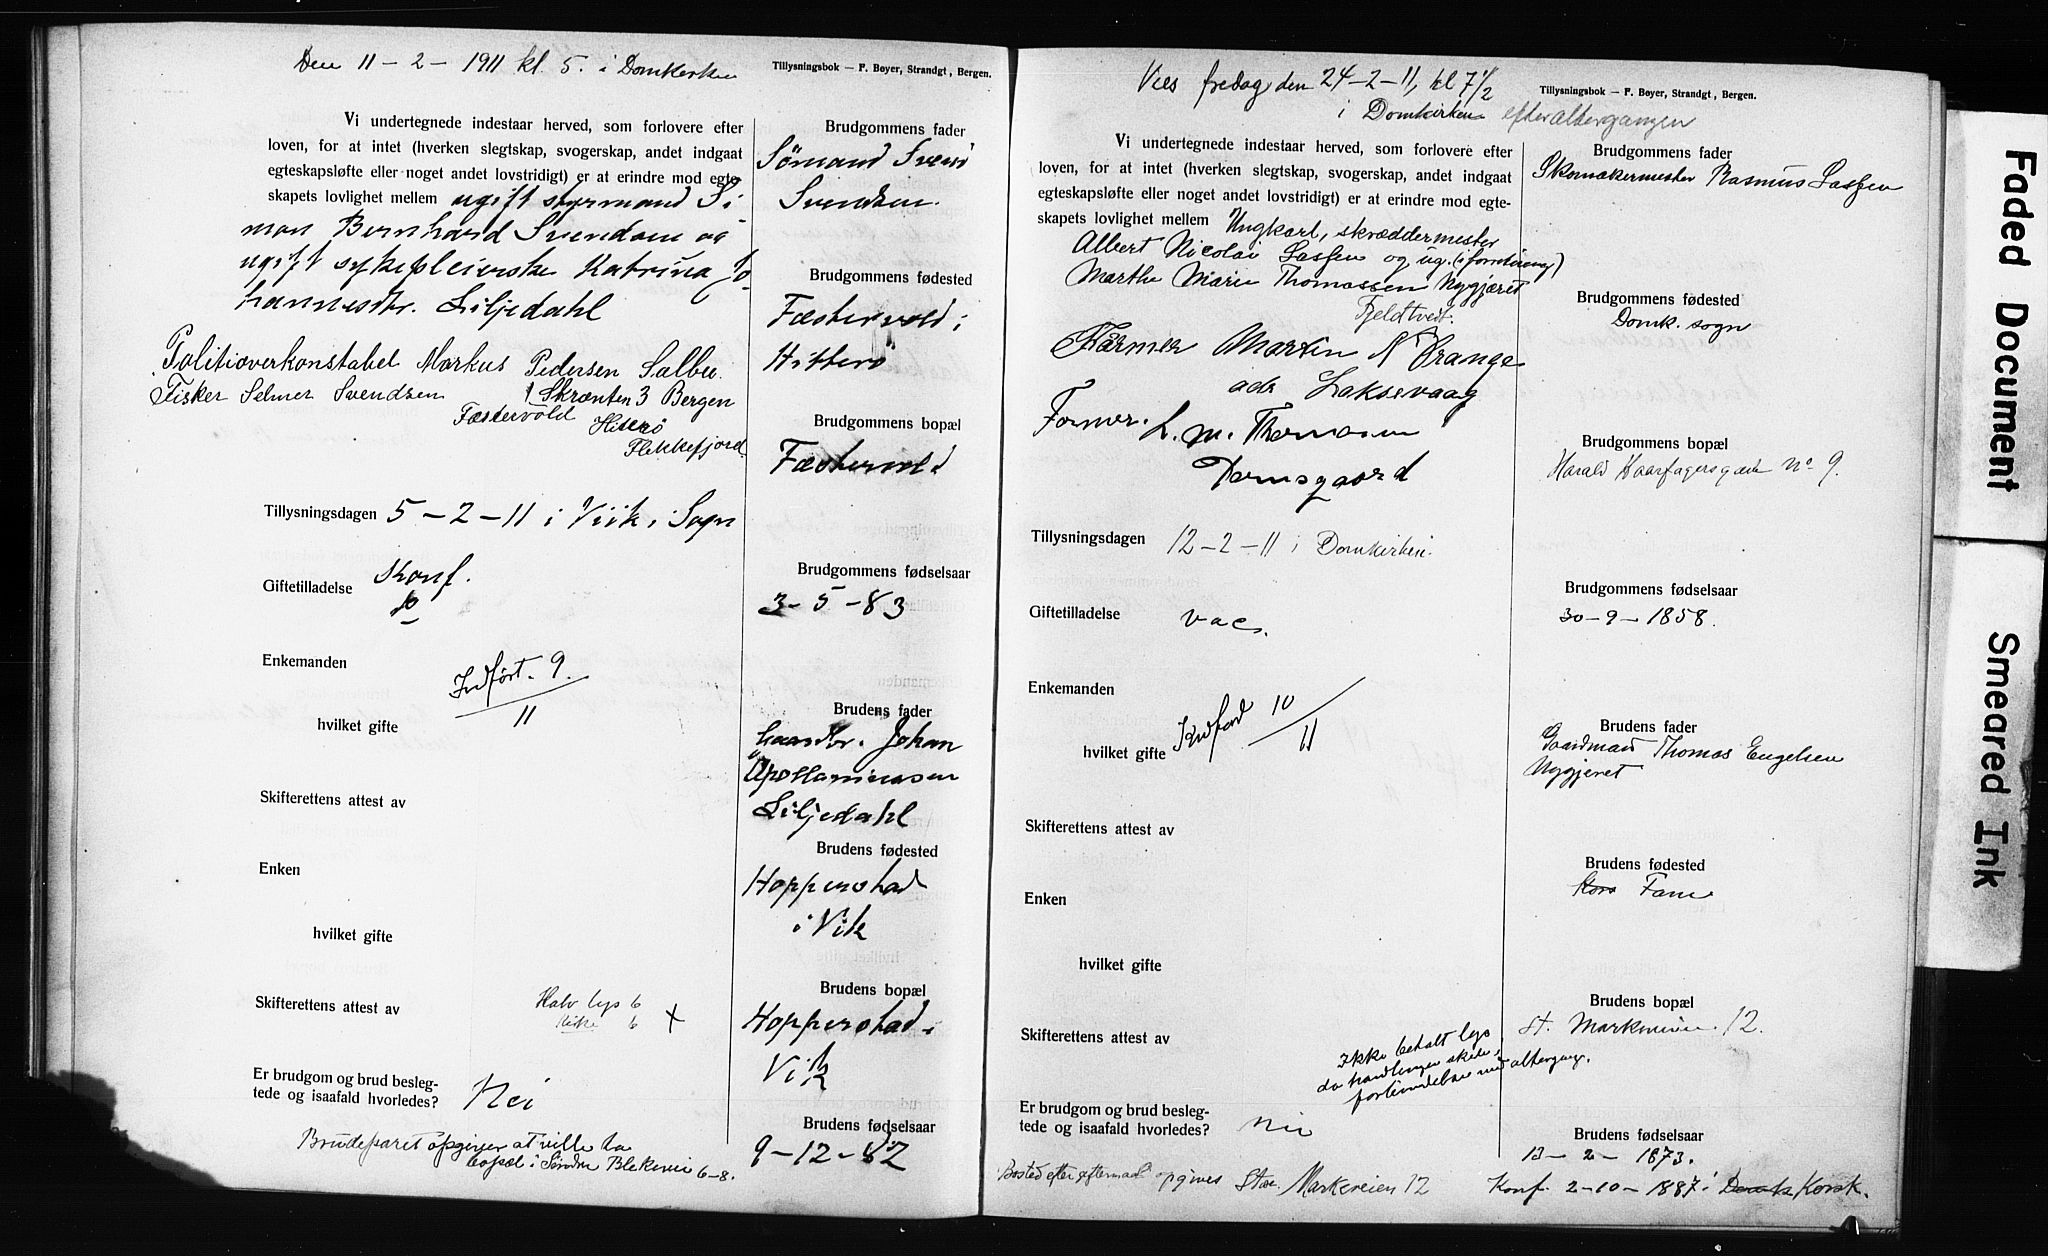 Den 11-2-1911 kl. 5. i Domkirken
Tillysningsbok — F. Beyer, Strandgt, Bergen.
Vi undertegnede indestaar herved, som forlovere efter
loven, for at intet (hverken slegtskap, svogerskap, andet indgaat
egteskapsløfte eller noget andet lovstridigt) er at erindre mod egte-
skapets lovlighet mellem ugift styrmand Si-
mon Bernhard Svendsen og
ugift sykepleierske Katrina Jo-
hannesdtr. Liljedahl
Politioverkonstabel Markus Pedersen Salbu.
Skrænten 3 Bergen
Fisker Selmer Svendsen
Fæstervold Hitterø
Flekkefjord
Tillysningsdagen 5-2-11 i Viik i Sogn
Giftetilladelse Konf.
Enkemanden
Indført. 9/11
hvilket gifte
Skifterettens attest av
Enken
hvilket gifte
Skifterettens attest av
Halv lys 6
6 x
Er brudgom og brud besleg-
tede og isaafald hvorledes? Nei
Brudeparet opgiver at ville ta
bopæl i Søndre Blekevei 6-8.
Brudgommens fader
Sømand Svend
Svendsen.
Brudgommens fødested
Fæstervold i
Hitterø
Brudgommens bopæl
Fæstervold
Brudgommens fødselsaar
3-5-83
Brudens fader
Gaardbr. Johan
Liljedahl
Brudens fødested
Hopperstad
i Vik
Brudens bopæl
Hopperstad i
Vik
Brudens fødselsaar
9-12-82
Vies fredag den 24-2-11, kl 7 1/2
i Domkirken efter altergangen
Tillysningsbok — F. Beyer, Strandgt, Bergen.
Vi undertegnede indestaar herved, som forlovere efter
loven, for at intet (hverken slegtskap, svogerskap, andet indgaat
egteskapsløfte eller noget andet lovstridigt) er at erindre mod egte-
skapets lovlighet mellem Ungkarl, skræddermester
Albert Nicolai Lassen og ug. (i forretning)
Marthe Marie Thomassen Nygjæret
Fjeldtvedt.
Former Martin N Drange
adr Laksevaag
Former. L. M. Thomasen
Damsgaard
Tillysningsdagen 12-2-11 i Domkirken.
Giftetilladelse vac.
Enkemanden
Indført 10/11
hvilket gifte
Skifterettens attest av
Enken
hvilket gifte
Skifterettens attest av
Ikke betalt lys
da handlingen skete i
forbindelse med altergang.
Er brudgom og brud besleg-
tede og isaafald hvorledes? Nei
Bosted efter egteskab opgives Store Markeveien 12
Brudgommens fader
Skomakermester Rasmus Lassen
Brudgommens fødested
Domk. sogn
Brudgommens bopæl
Harald Haarfagersgade No 9.
Brudgommens fødselsaar
30-9-1858.
Brudens fader
Gaardmand Thomas Engelsen
Nygjeret
Brudens fødested
Kors Fane
Brudens bopæl
St. Markeveien 12.
Brudens fødselsaar
13-2-1873.
Konf. 2-10-1887 i Domk Korsk.
Faded Document
Smeared Ink